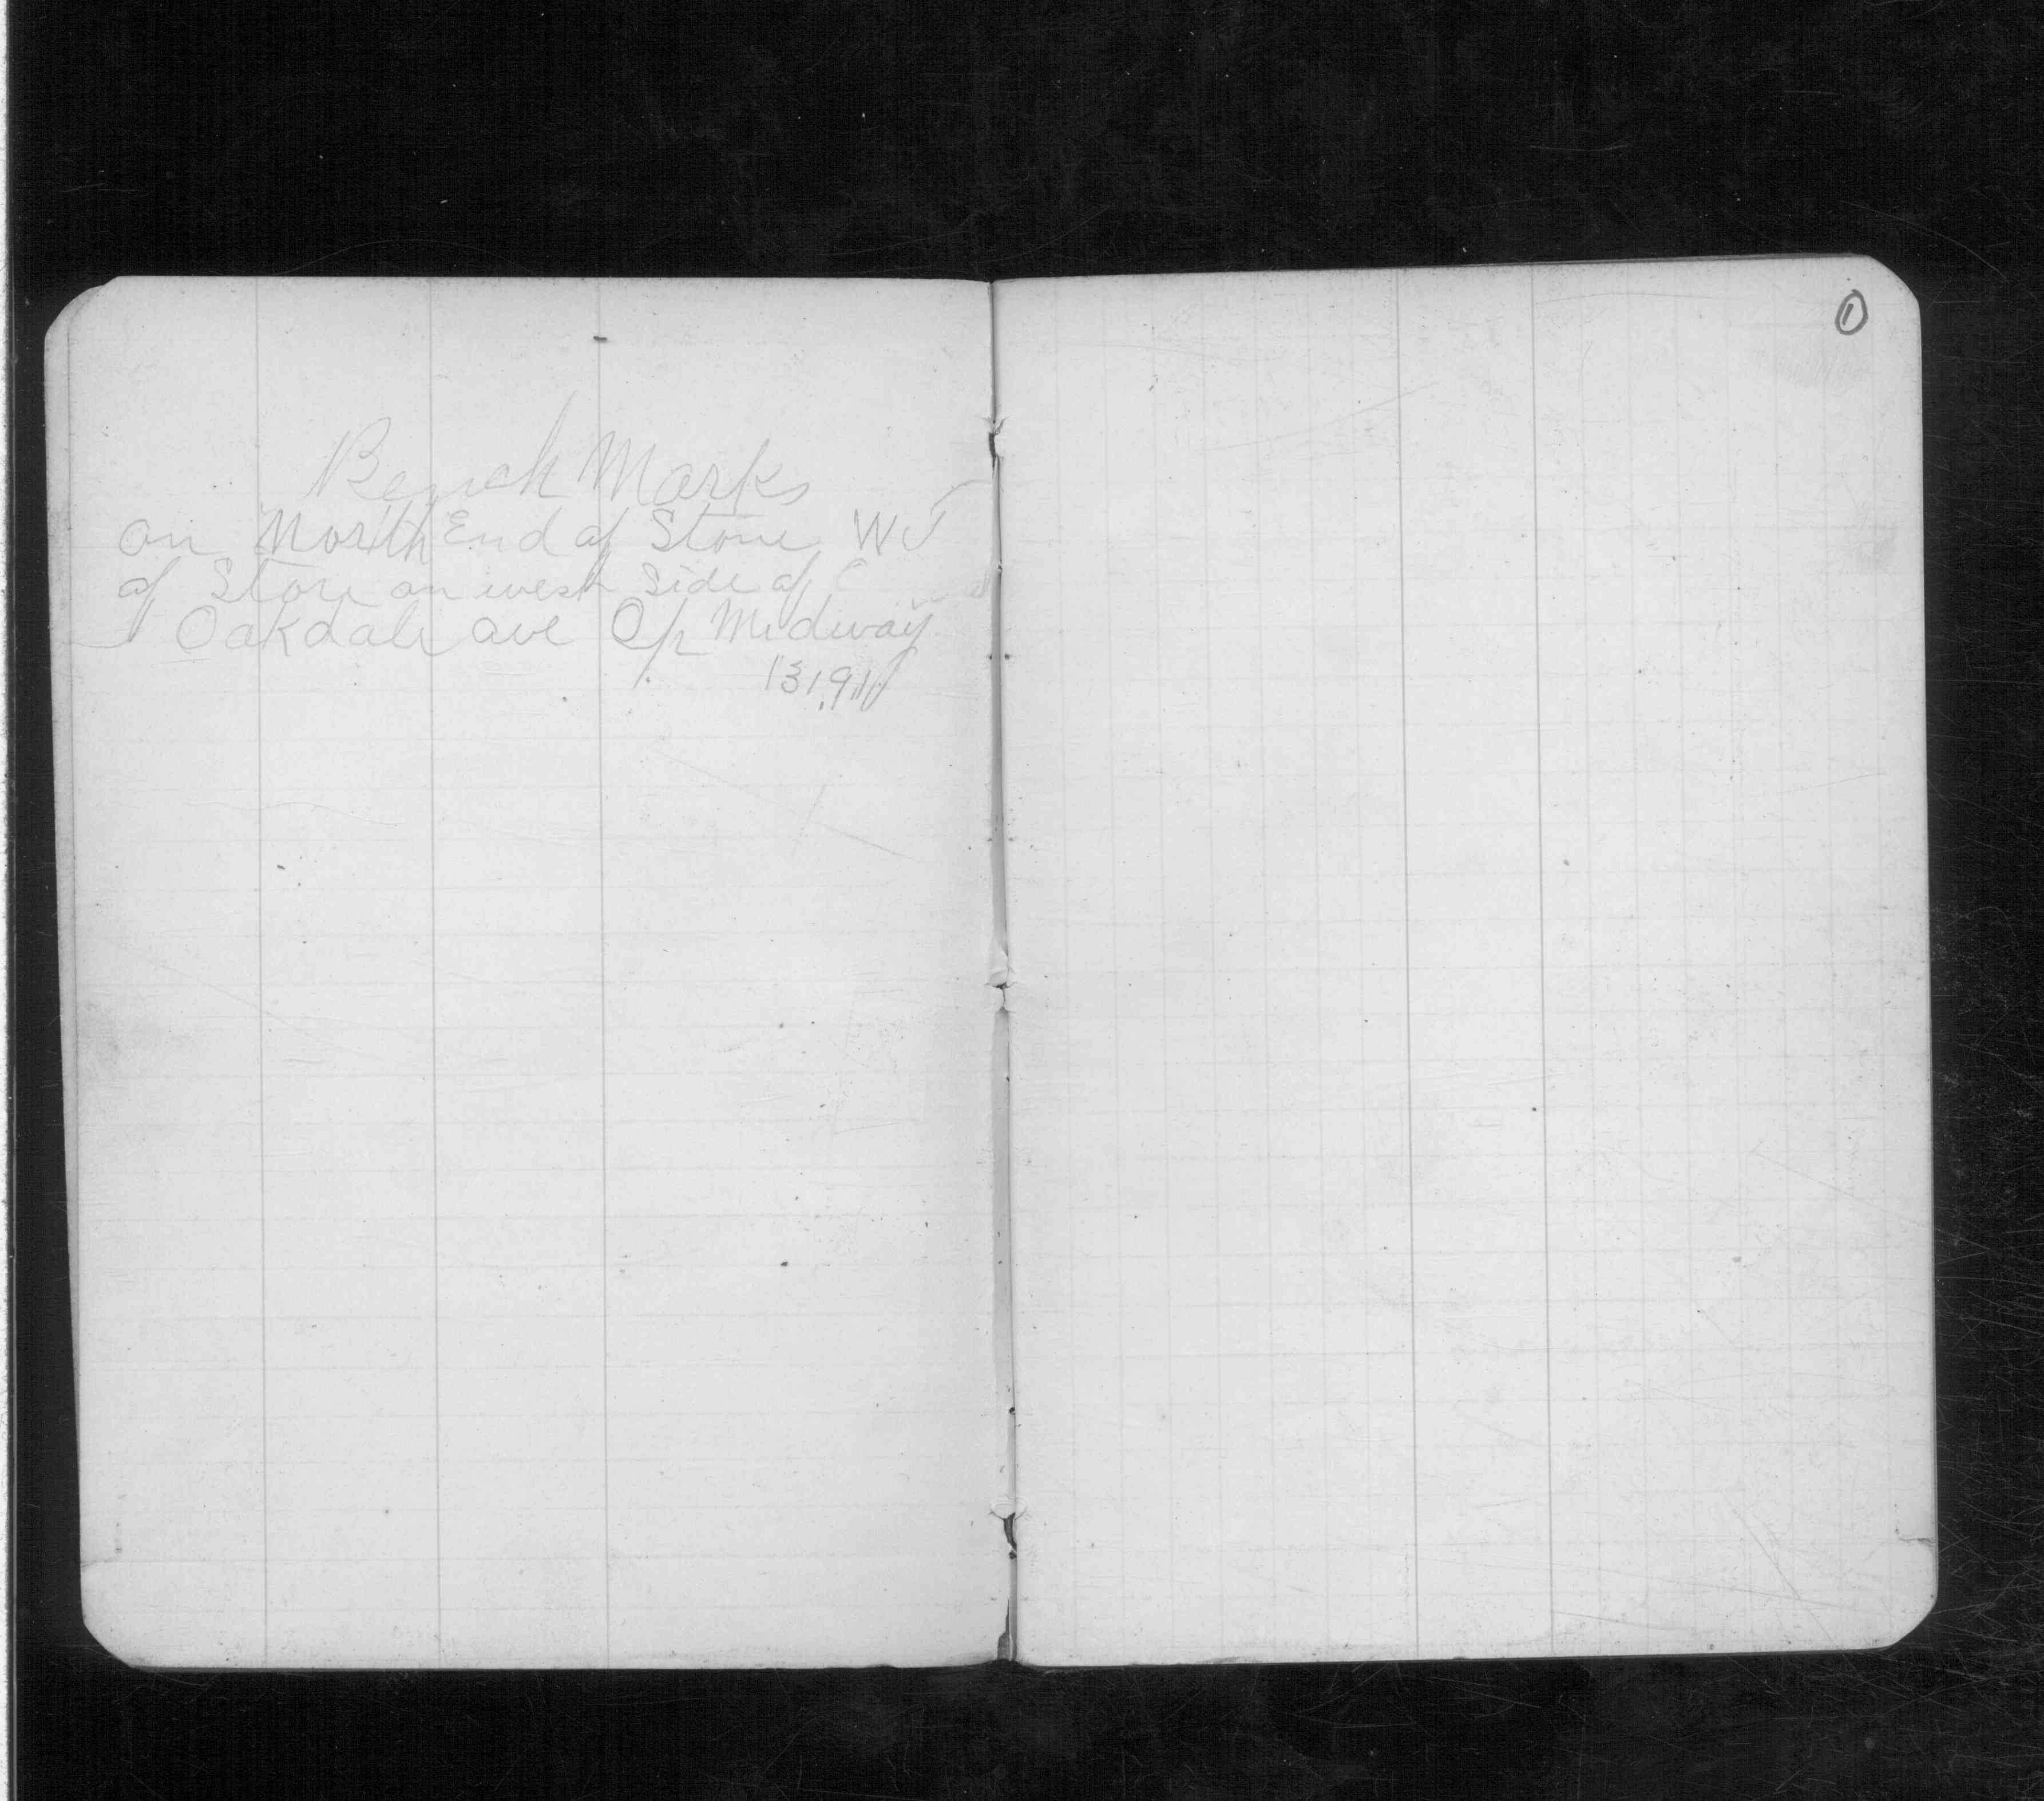 Bench Marks
on North End of Stone W
of Store on west side of
Oakdale ave Op Midway
131.911
①